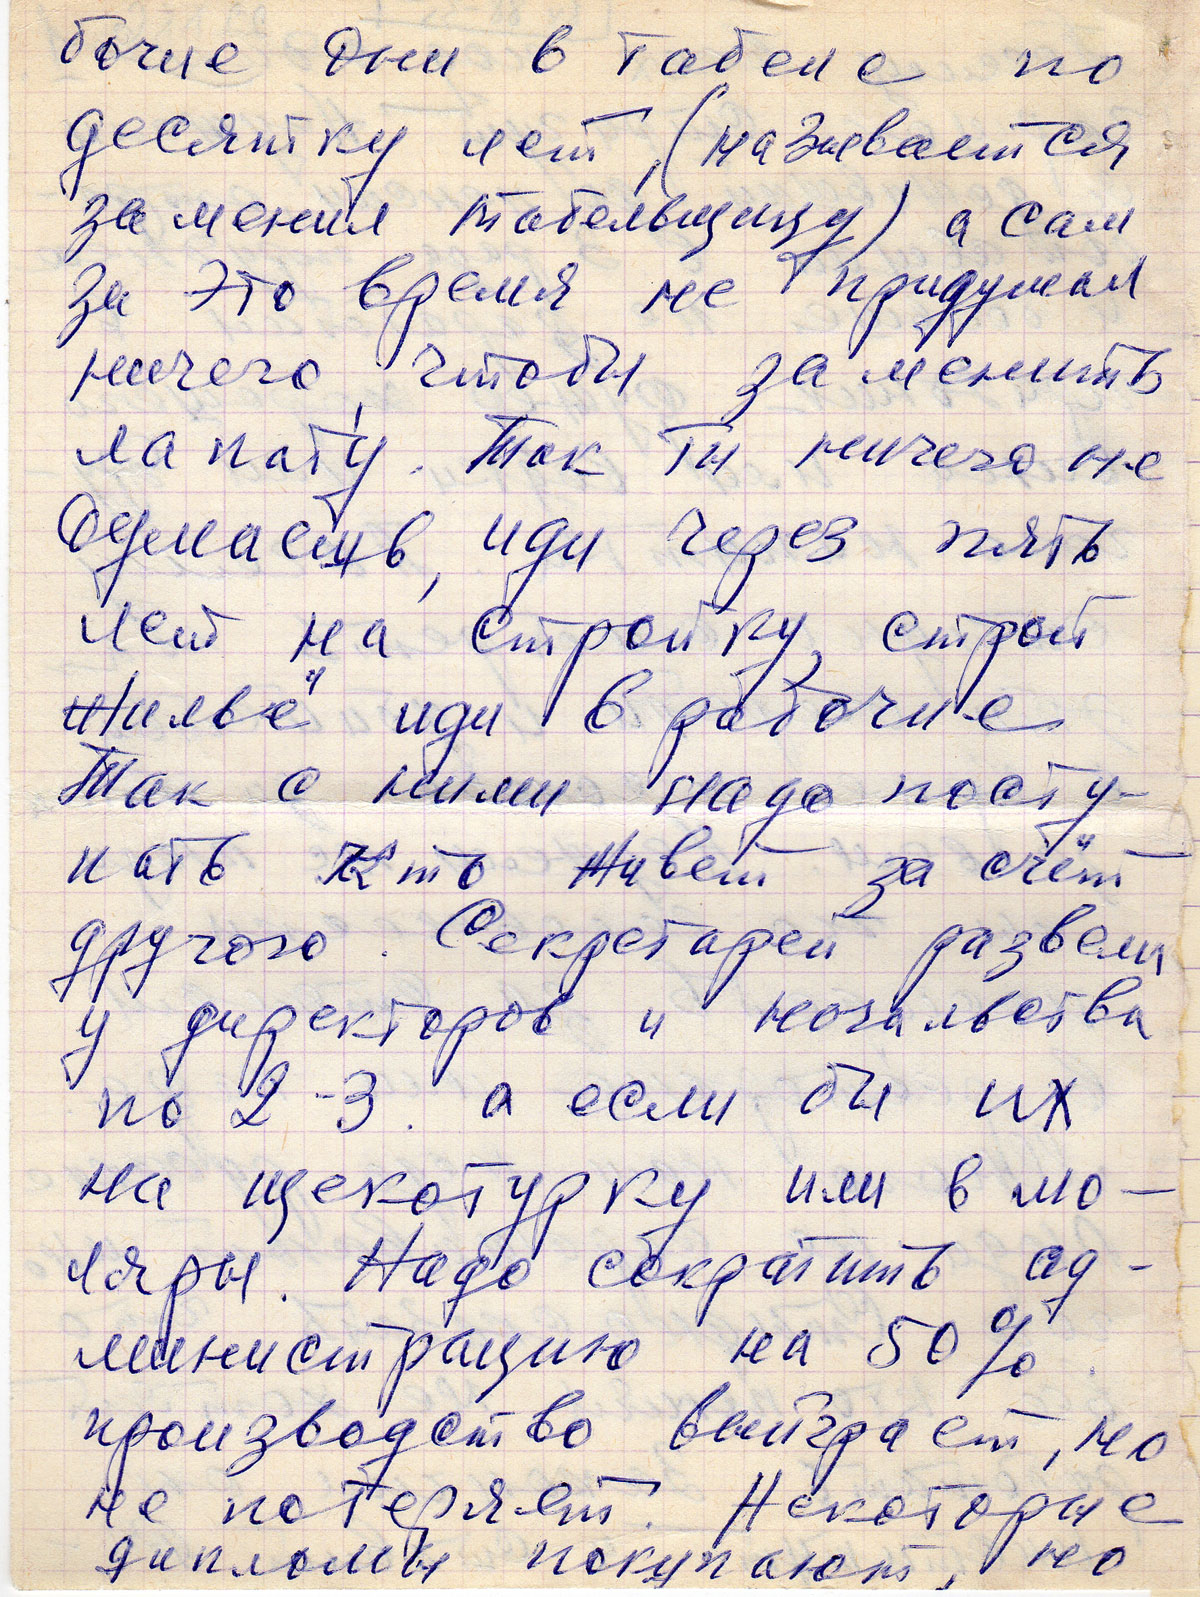 бочие дни в табеле по
десятку лет, (называется
заменил табельщицу) а сам
за это время не придумал
ничего, чтобы заменить
лапату. Так ти ничего не
думаешь, иди через пять
лет на стройку, строй
жильё" иди в рабочие
Так с ними надо посту-
пать кто живет за счёт
другого. Секретарей развели
у директоров и начальства
по 2-3. а если бы их
на щекотурку или в мо-
ляры. Надо сократить ад-
министрацию на 50%.
производство выиграет, но
не потеряет. Некоторые
дипломы покупают, но